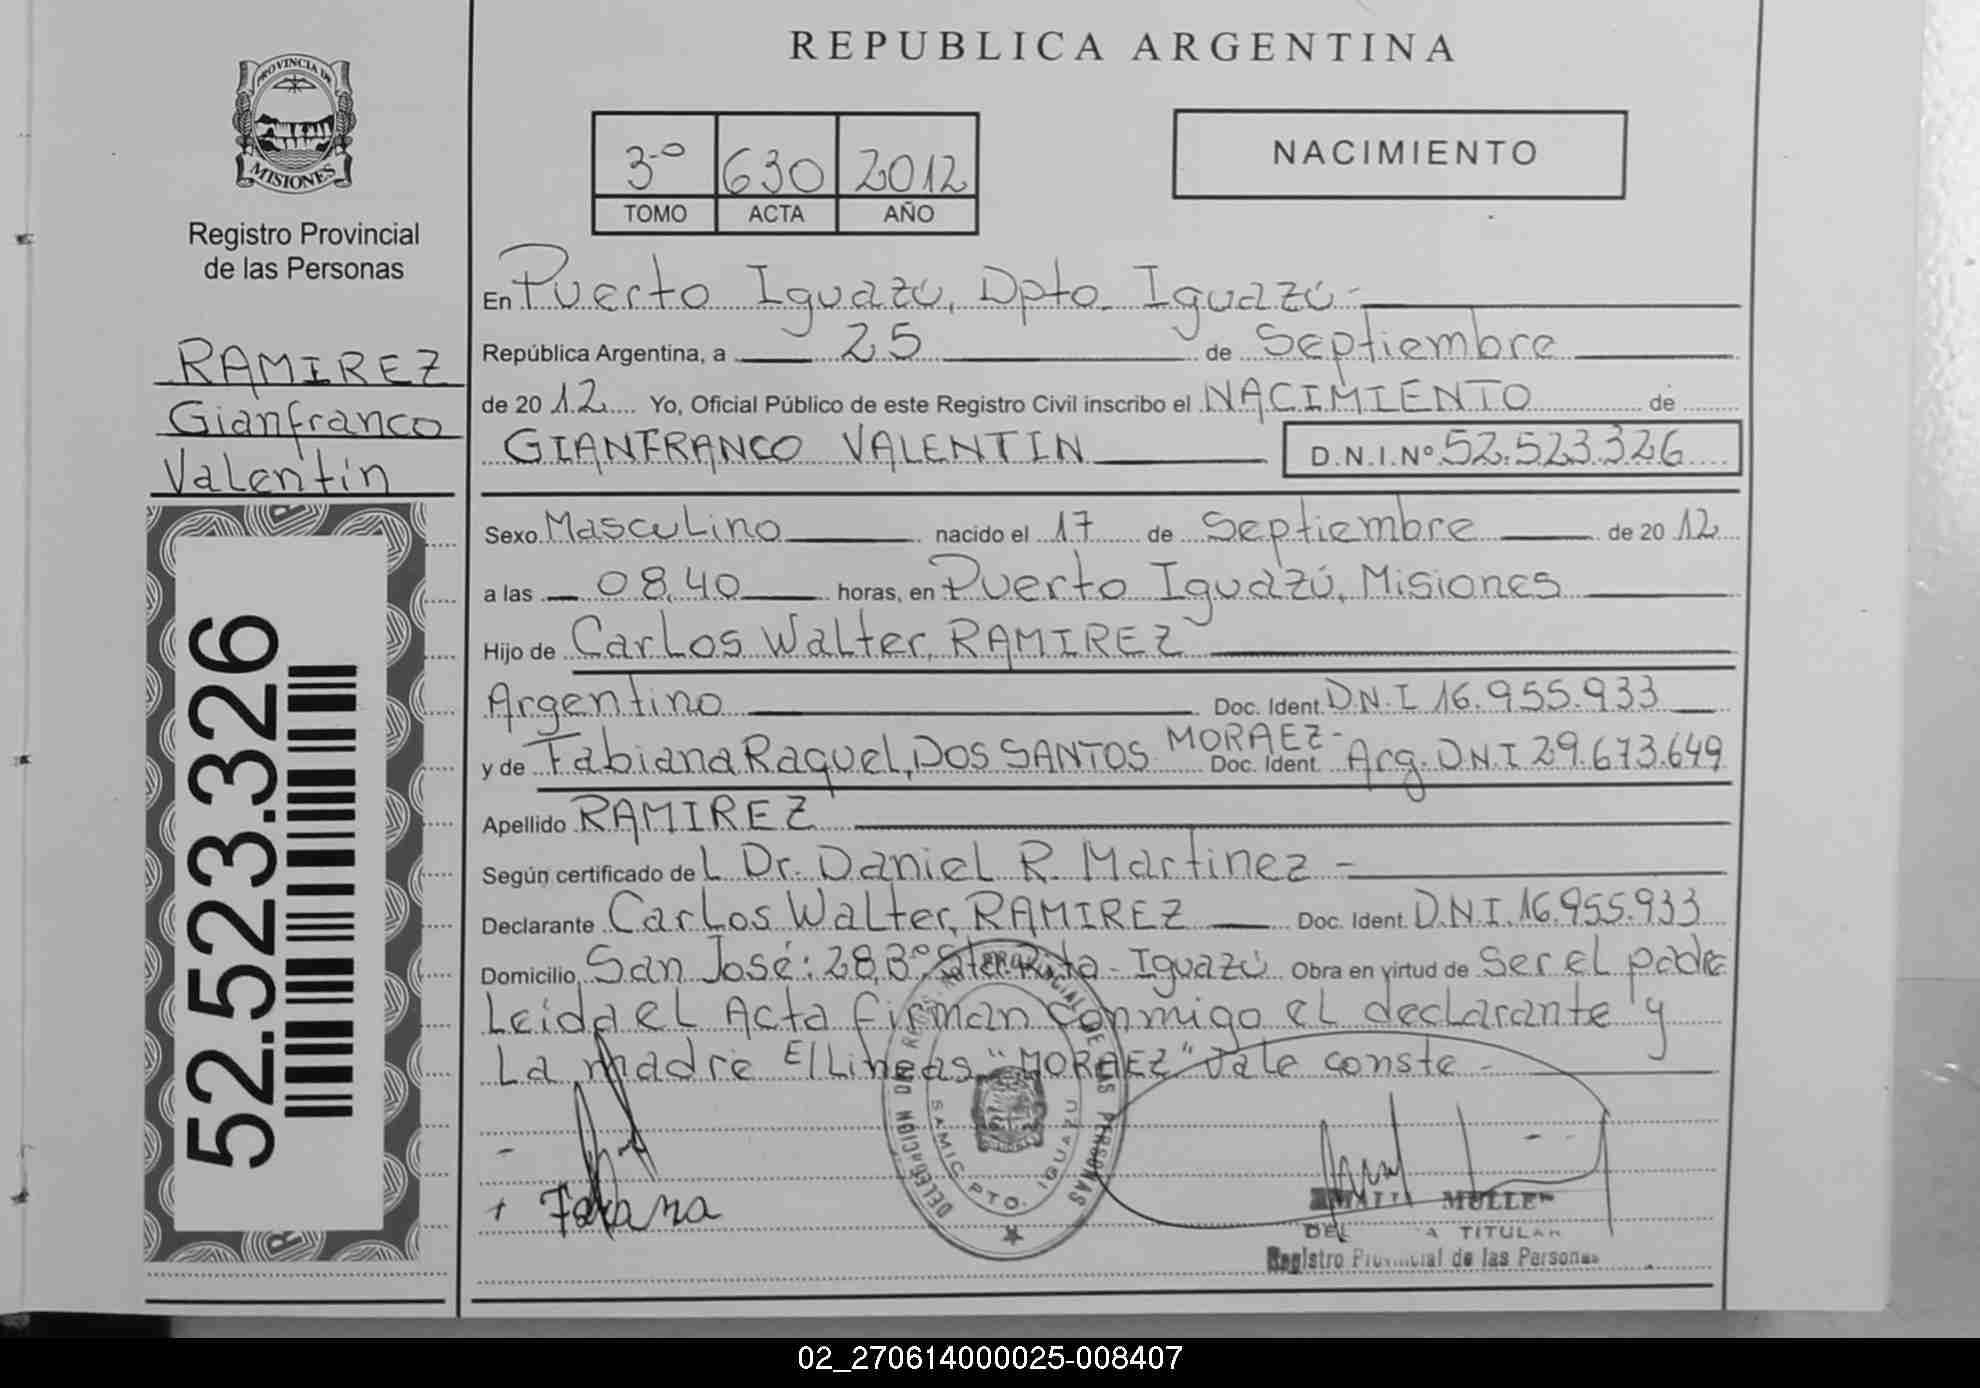 REPUBLICA ARGENTINA
PROVINCIA DE
MISIONES
Registro Provincial
de las Personas
3º 630 2012
TOMO ACTA AÑO
NACIMIENTO
RAMIREZ
Gianfranco
Valentín
52.523.326
En Puerto Iguazú, Dpto. Iguazú-
República Argentina, a 25 de Septiembre
de 20 12 Yo, Oficial Público de este Registro Civil inscribo el NACIMIENTO de
GIANFRANCO VALENTIN D.N.I.Nº 52.523.326
Sexo Masculino nacido el 17 de Septiembre de 20 12
a las 08,40 horas, en Puerto Iguazú, Misiones
Hijo de Carlos Walter, RAMIREZ
Argentino Doc. Ident. D.N.I 16.955.933
y de Fabiana Raquel, DOS SANTOS MORAEZ- Doc. Ident. Arg. D.N.I 29.673.649
Apellido RAMIREZ
Según certificado de L Dr. Daniel R. Martinez -
Declarante Carlos Walter, RAMIREZ Doc. Ident. D.N.I. 16.955.933
Domicilio San José: 283º Sta. Rita - Iguazú Obra en virtud de Ser el padre
Leída el Acta firman conmigo el declarante y
La madre E/Lineas "MORAEZ" Vale conste -
DELEGACION DEL REGISTRO PROVINCIAL DE LAS PERSONAS
SAMIC PTO. IGUAZU
MULLE
TITULAR
Registro Provincial de las Personas
02_270614000025-008407